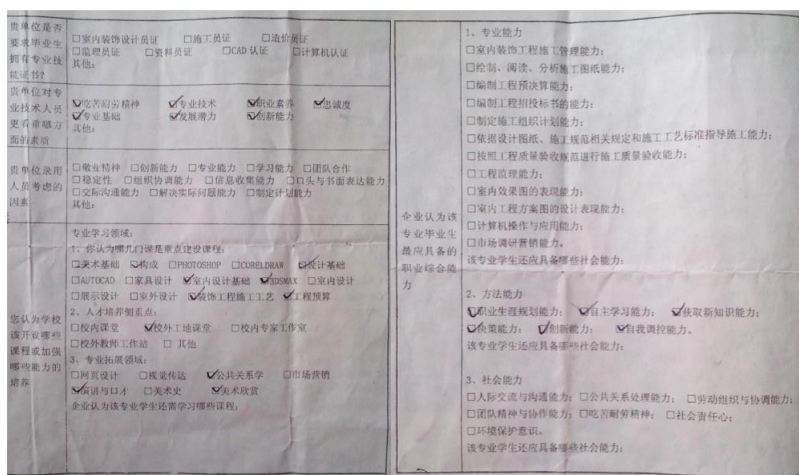 贵单位是否要求毕业生拥有专业技能证书?
□室内装饰设计员证 □施工员证 □造价员证
□监理员证 □资料员证 □CAD 认证 □计算机认证
其他:
贵单位对专业技术人员更看重哪方面的素质
☑吃苦耐劳精神 ☑专业技术 ☑职业素养 ☑忠诚度
☑专业基础 ☑发展潜力 ☑创新能力
其他:
贵单位录用人员考虑的因素
□敬业精神 □创新能力 □专业能力 □学习能力 □团队合作
□稳定性 □组织协调能力 □信息收集能力 □口头与书面表达能力
□交际沟通能力 □解决实际问题能力 □制定计划能力
其他:
您认为学校该开设哪些课程或加强哪些能力的培养
专业学习领域:
1、你认为哪几门课是重点建设课程:
□美术基础 ☑构成 □PHOTOSHOP □CORELDRAW ☑设计基础
□AUTOCAD □家具设计 ☑室内设计基础 ☑3DSMAX □室内设计
□展示设计 □室外设计 ☑装饰工程施工工艺 ☑工程预算
2、人才培养侧重点:
□校内课堂 ☑校外工地课堂 □校内专家工作室
□校外教师工作站 □ 其他
3、专业拓展领域:
□网页设计 □视觉传达 ☑公共关系学 □市场营销
☑演讲与口才 □美术史 ☑美术欣赏
企业认为该专业学生还需学习哪些课程:
企业认为该专业毕业生最应具备的职业综合能力
1、专业能力
□室内装饰工程施工管理能力;
□绘制、阅读、分析施工图纸能力;
□编制工程预决算能力;
□编制工程招投标书的能力;
□制定施工组织计划能力;
□依据设计图纸、施工规范相关规定和施工工艺标准指导施工能力;
□按照工程质量验收规范进行施工质量验收能力;
□工程监理能力;
□室内效果图的表现能力;
□室内工程方案图的设计表现能力;
□计算机操作与应用能力;
□市场调研营销能力。
该专业学生还应具备哪些社会能力:
2、方法能力
☑职业生涯规划能力; ☑自主学习能力; ☑获取新知识能力;
☑决策能力; ☑创新能力; ☑自我调控能力。
该专业学生还应具备哪些社会能力:
3、社会能力
□人际交流与沟通能力; □公共关系处理能力; □劳动组织与协调能力;
□团队精神与协作能力; □吃苦耐劳精神; □社会责任心;
□环境保护意识。
该专业学生还应具备哪些社会能力: